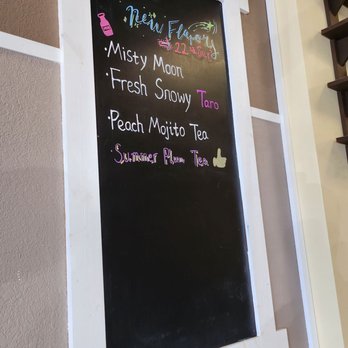 New Flavors
·Misty Moon
·Fresh Snowy Taro
·Peach Mojito Tea
Summer Plum Tea